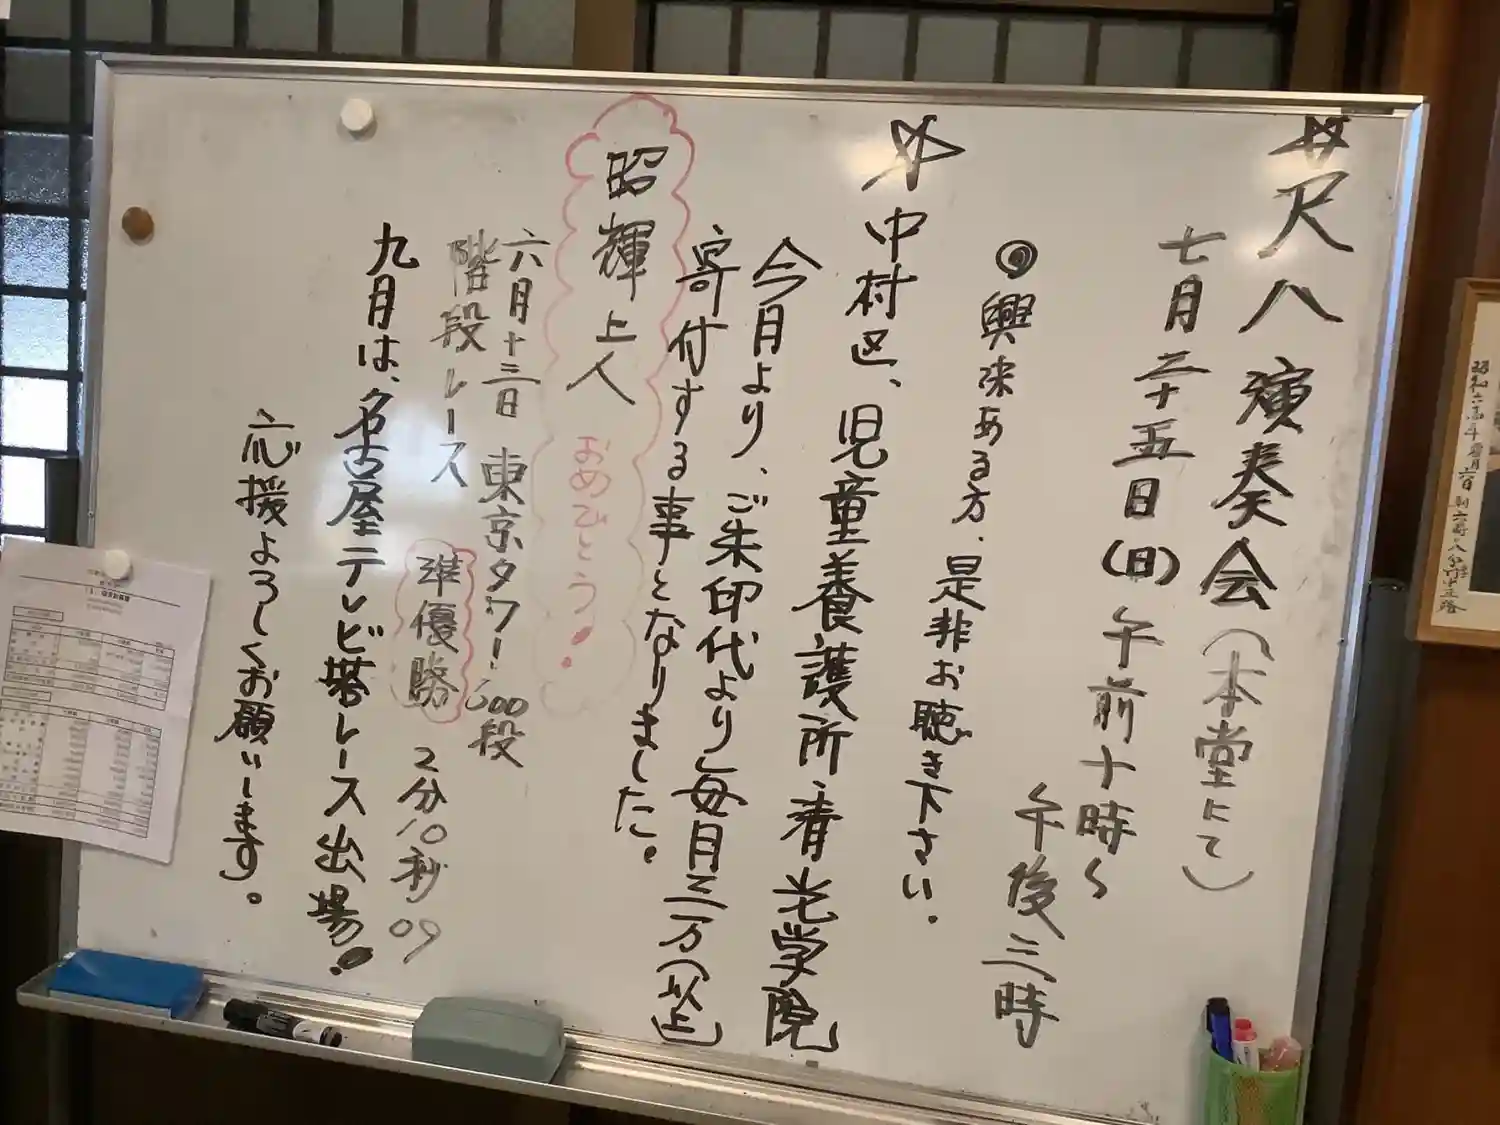 ☆尺八演奏会(本堂にて)
七月二十五日(日)午前十時〜
午後三時
◎興味ある方、是非お聴き下さい。
☆中村区、児童養護所清光学院
今月より、ご朱印代より毎月三万(以上)
寄付する事となりました。
昭輝上人 おめでとう!
六月十三日 東京タワー600段
階段レース 準優勝 2分10秒09
九月は、名古屋テレビ塔レース出場!
応援よろしくお願いします。